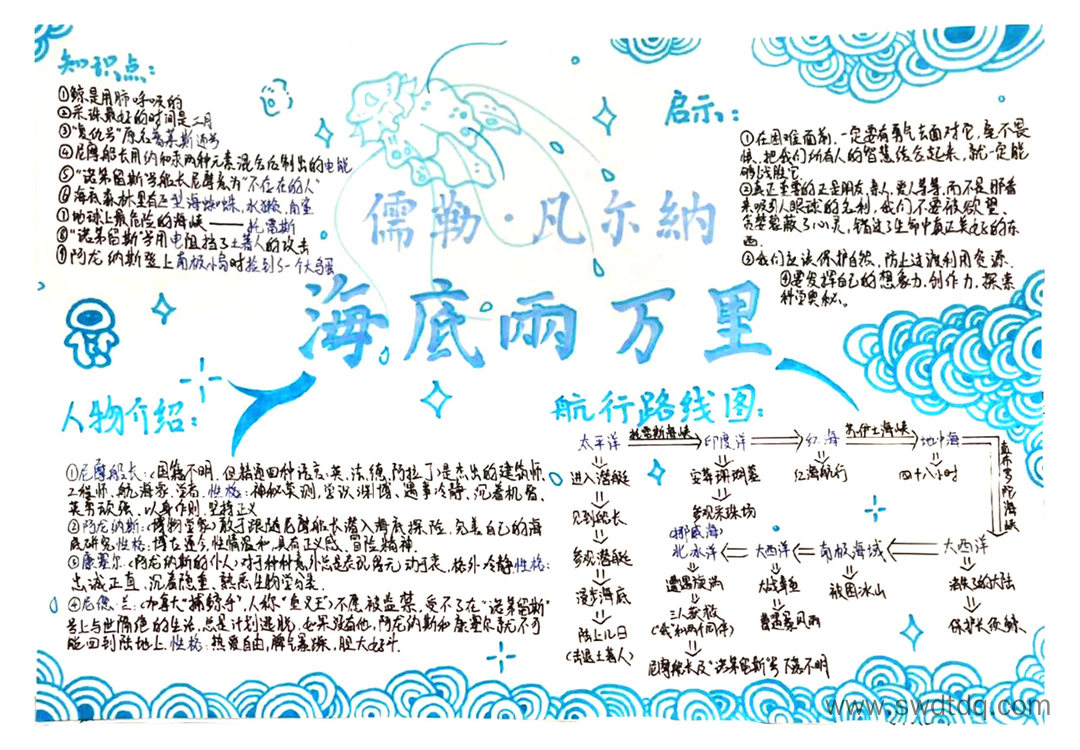 知识点：
①鲸是用肺呼吸的
②采珠最好的时间是三月
③"复仇号"原名马赛斯远号
④尼摩船长用纳和汞两种元素混合后制出的电能
⑤"诺第留斯"号船长尼摩意为"不存在的人"
⑥海底森林里有巨型海蜘蛛,水獭,角鲨
⑦地球上最危险的海峡——托雷斯
⑧"诺第留斯"号用电阻挡了土著人的攻击
⑨阿龙纳斯登上南极小岛时捡到了一个大鸟蛋
启示：
①在困难面前,一定要有勇气去面对它,毫不畏
惧,把我们所有人的智慧结合起来,就一定能
够战胜它
②真正重要的正是朋友,亲人,爱人等等,而不是那看
来吸引人眼球的名利,我们不要被欲望、
贪婪蒙蔽了心灵,错过了生命中真正美好的东
西.
③我们应该保护自然、防止过渡利用资源.
④要发挥自己的想象力,创作力,探索
科学奥秘。
儒勒·凡尔納
海底兩万里
人物介绍：
①尼摩船长:(国籍不明,但精通四种语言:英,法,德,阿拉丁)是杰出的建筑师,
工程师、航海家、学者,性格:神秘莫测,学识渊博,遇事冷静,沉着机智,
英勇顽强、以身作则,坚持正义
②阿龙纳斯:(博物学家)敢于跟随尼摩船长潜入海底探险,完善自己的海
底研究性格:博古通今,性情温和,具有正义感、冒险精神.
③康塞尔:(阿龙纳斯的仆人)对于种种意外总是表现得无动于衷,格外冷静性格:
忠诚正直、沉着稳重、熟悉生物学分类.
④尼德·兰:(加拿大"捕鲸手",人称"鱼叉王")不愿被监禁,受不了在"诺第留斯"
号上与世隔绝的生活,总是计划逃脱,如果没有他,阿龙纳斯和康塞尔就不可
能回到陆地上.性格:热爱自由,脾气暴躁,胆大好斗.
航行路线图：
太平洋 托雷斯海峡 印度洋 红海 苏伊士海峡 地中海
进入潜艇 安葬珊瑚墓 红海航行 四十八小时
见到船长 参观采珠场
直布罗陀海峡
参观潜艇 (挪威海)
北冰洋 大西洋 南极海域 大西洋
漫步海底 遭遇漩涡 大战章鱼 被困冰山 消失了的大陆
陆上几日 三人获救 遭遇暴风雨
(击退土著人) (我和两个同伴)
尼摩船长及"诺第留斯"号下落不明
www.swdtdq.com